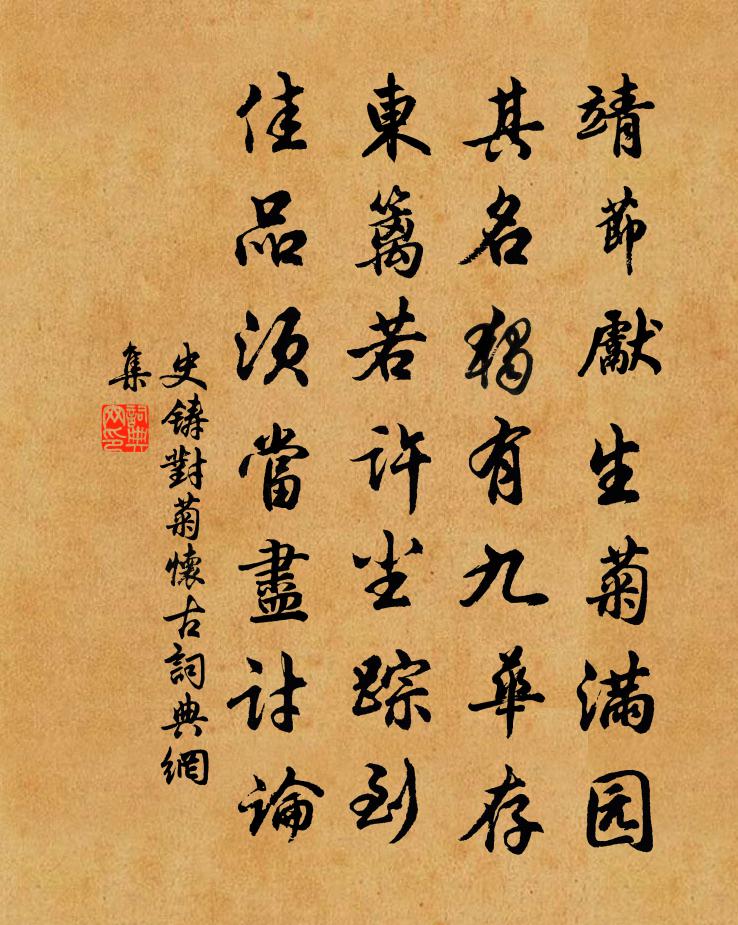 靖節獻生菊滿园
其名獨有九華存
東籬若許尘踪到
佳品須當盡討論
史鑄對菊懷古詞典網
集
詞典网印